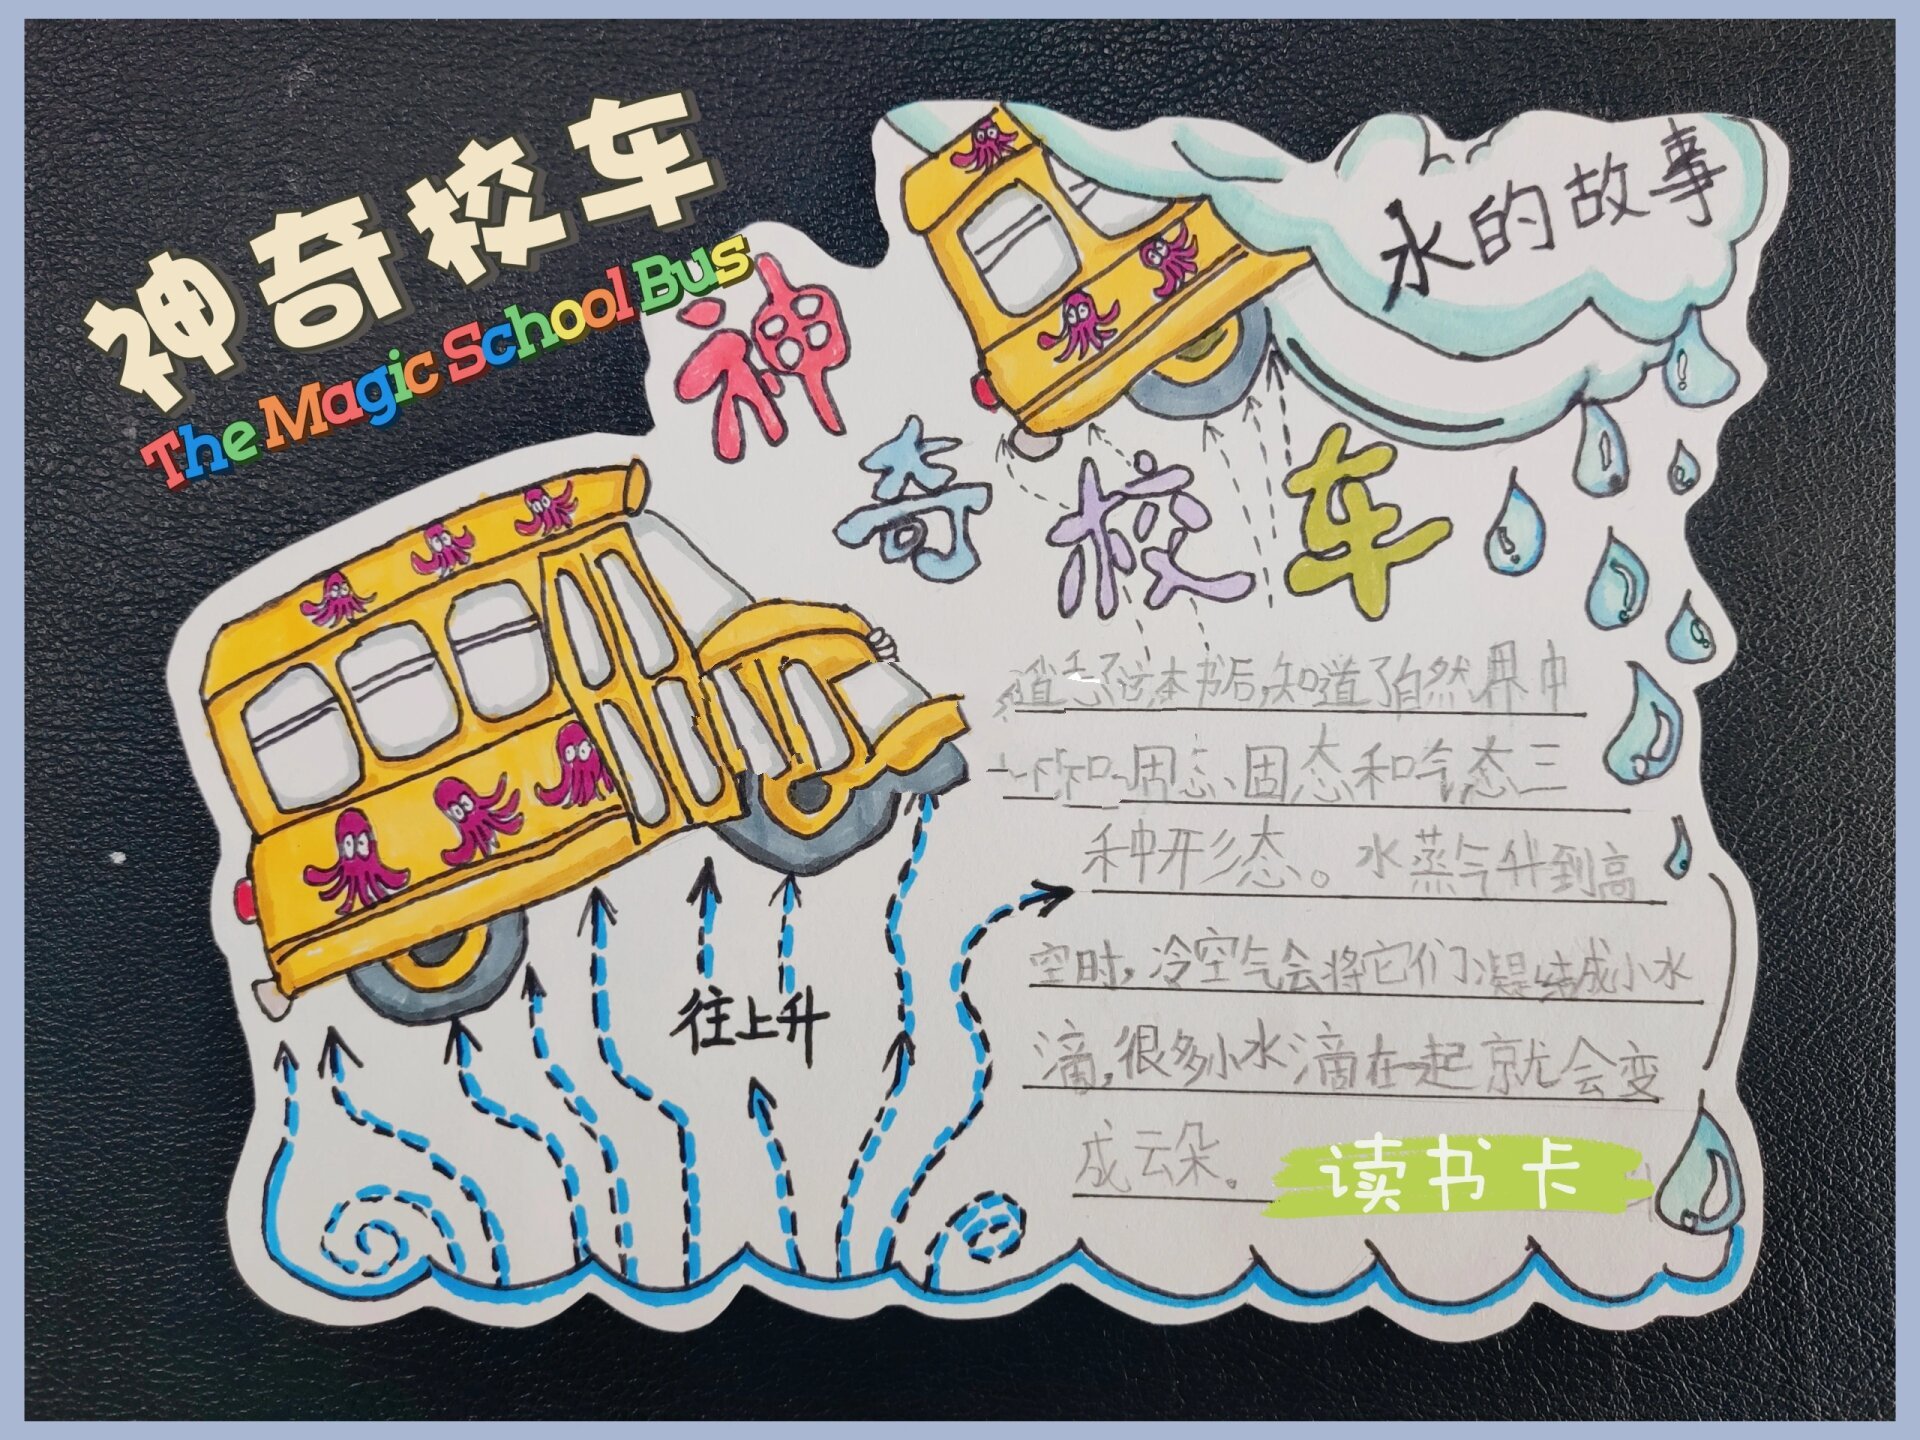 神奇校车
The Magic School Bus
水的故事
神
奇校车
这本书后,知道了自然界中
固态和气态三
种形态。水蒸气升到高
空时,冷空气会将它们凝结成小水
滴,很多小水滴在一起就会变
成云朵。
往上升
读书卡